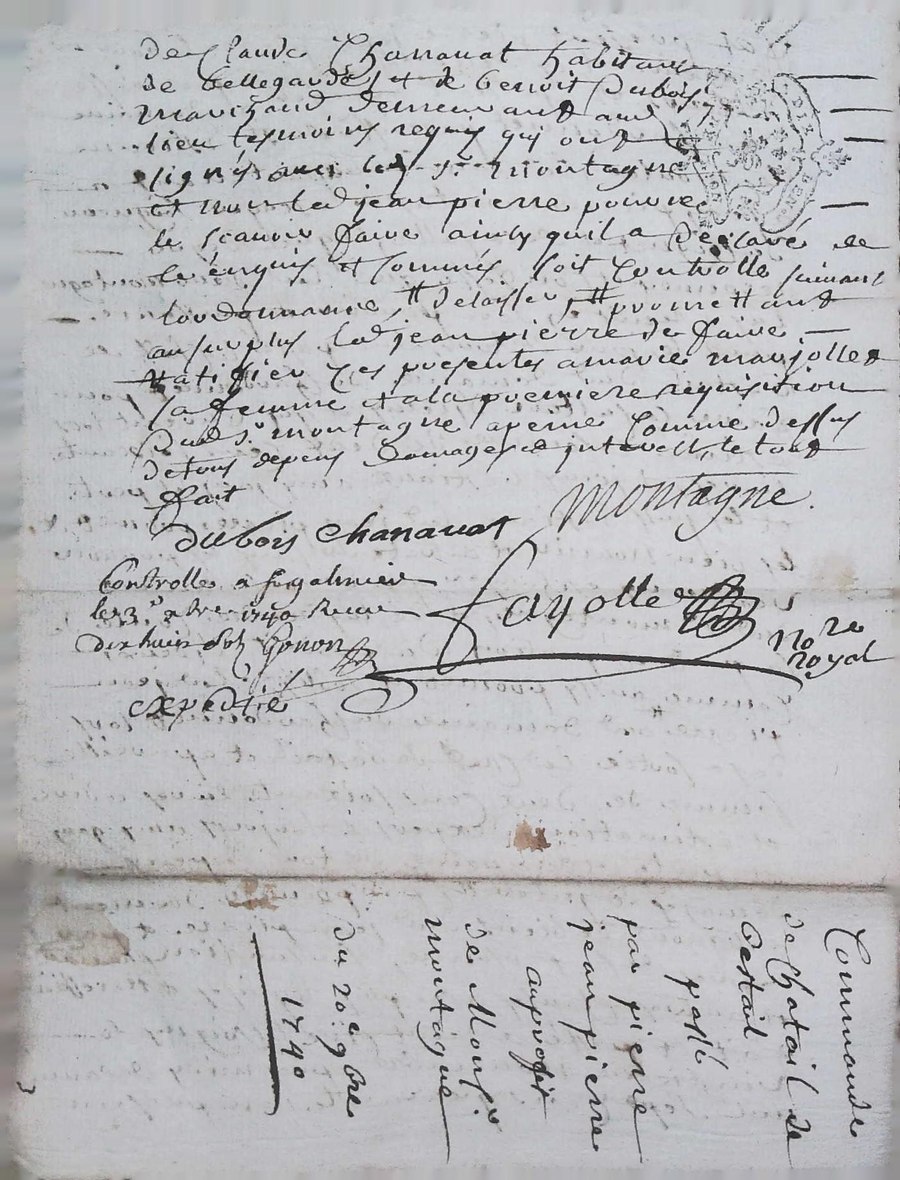 de Claude Chanavat habitant
de Bellegarde et de benoit Dubois
marchand demeurant aud
lieu tesmoins requis qui ont
signés avec led sr. montagne
et non led jean pierre pour ne
le scavoir faire ainsy quil a déclaré de
ce enquis et sommés soit Controllé suivant
lordonnance, # delaisser, # promettant
au surplus led jean pierre de faire
Ratiffier ces presentes a marie marjollet
sa femme et a la premiere requisition
dud sr montagne a peine Comme dessus
de tous depens domages et interests, le tout
fait
Montagne
dubois Chanavat
Controllé a st galmier
le 3e. xbre 1740 Receu
dix huit sols Gonon
fayolle
no re
royal
expédtié
Commande
de Chatail de
Bestail
passé
par pierre
jean pierre
au profit
de Monsr
montagne
du 20e. 9bre
1740